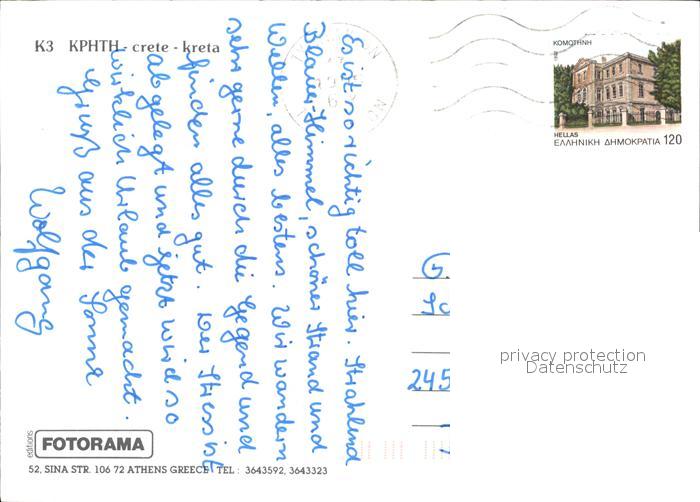 K3 ΚΡΗΤΗ - crete - kreta
Es ist so richtig toll hier. Strahlend
Blauer Himmel, schöner Strand und
Wellen, alles bestens. Wir wandern
sehr gerne durch die Gegend und
finden alles gut. Der Stress ist
abgelegt und jetzt wird so
wirklich Urlaub gemacht.
Gruß aus der Sonne
Wolfgang
ΚΟΜΟΤΗΝΗ
HELLAS
ΕΛΛΗΝΙΚΗ ΔΗΜΟΚΡΑΤΙΑ 120
G.
245
privacy protection
Datenschutz
editions FOTORAMA
52, SINA STR. 106 72 ATHENS GREECE TEL : 3643592, 3643323